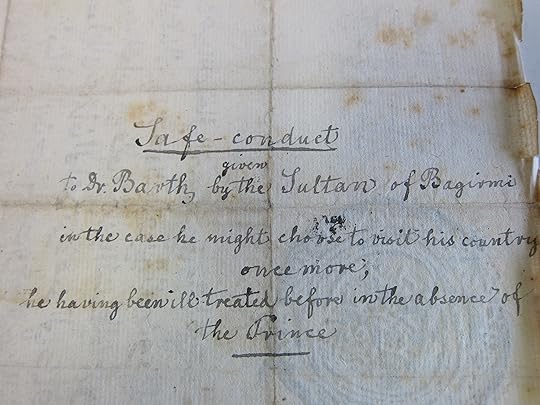 Safe-conduct
given
to Dr. Barth, by the Sultan of Bagirmi
in the case he might choose to visit his country
once more;
he having been ill treated before in the absence of
the Prince